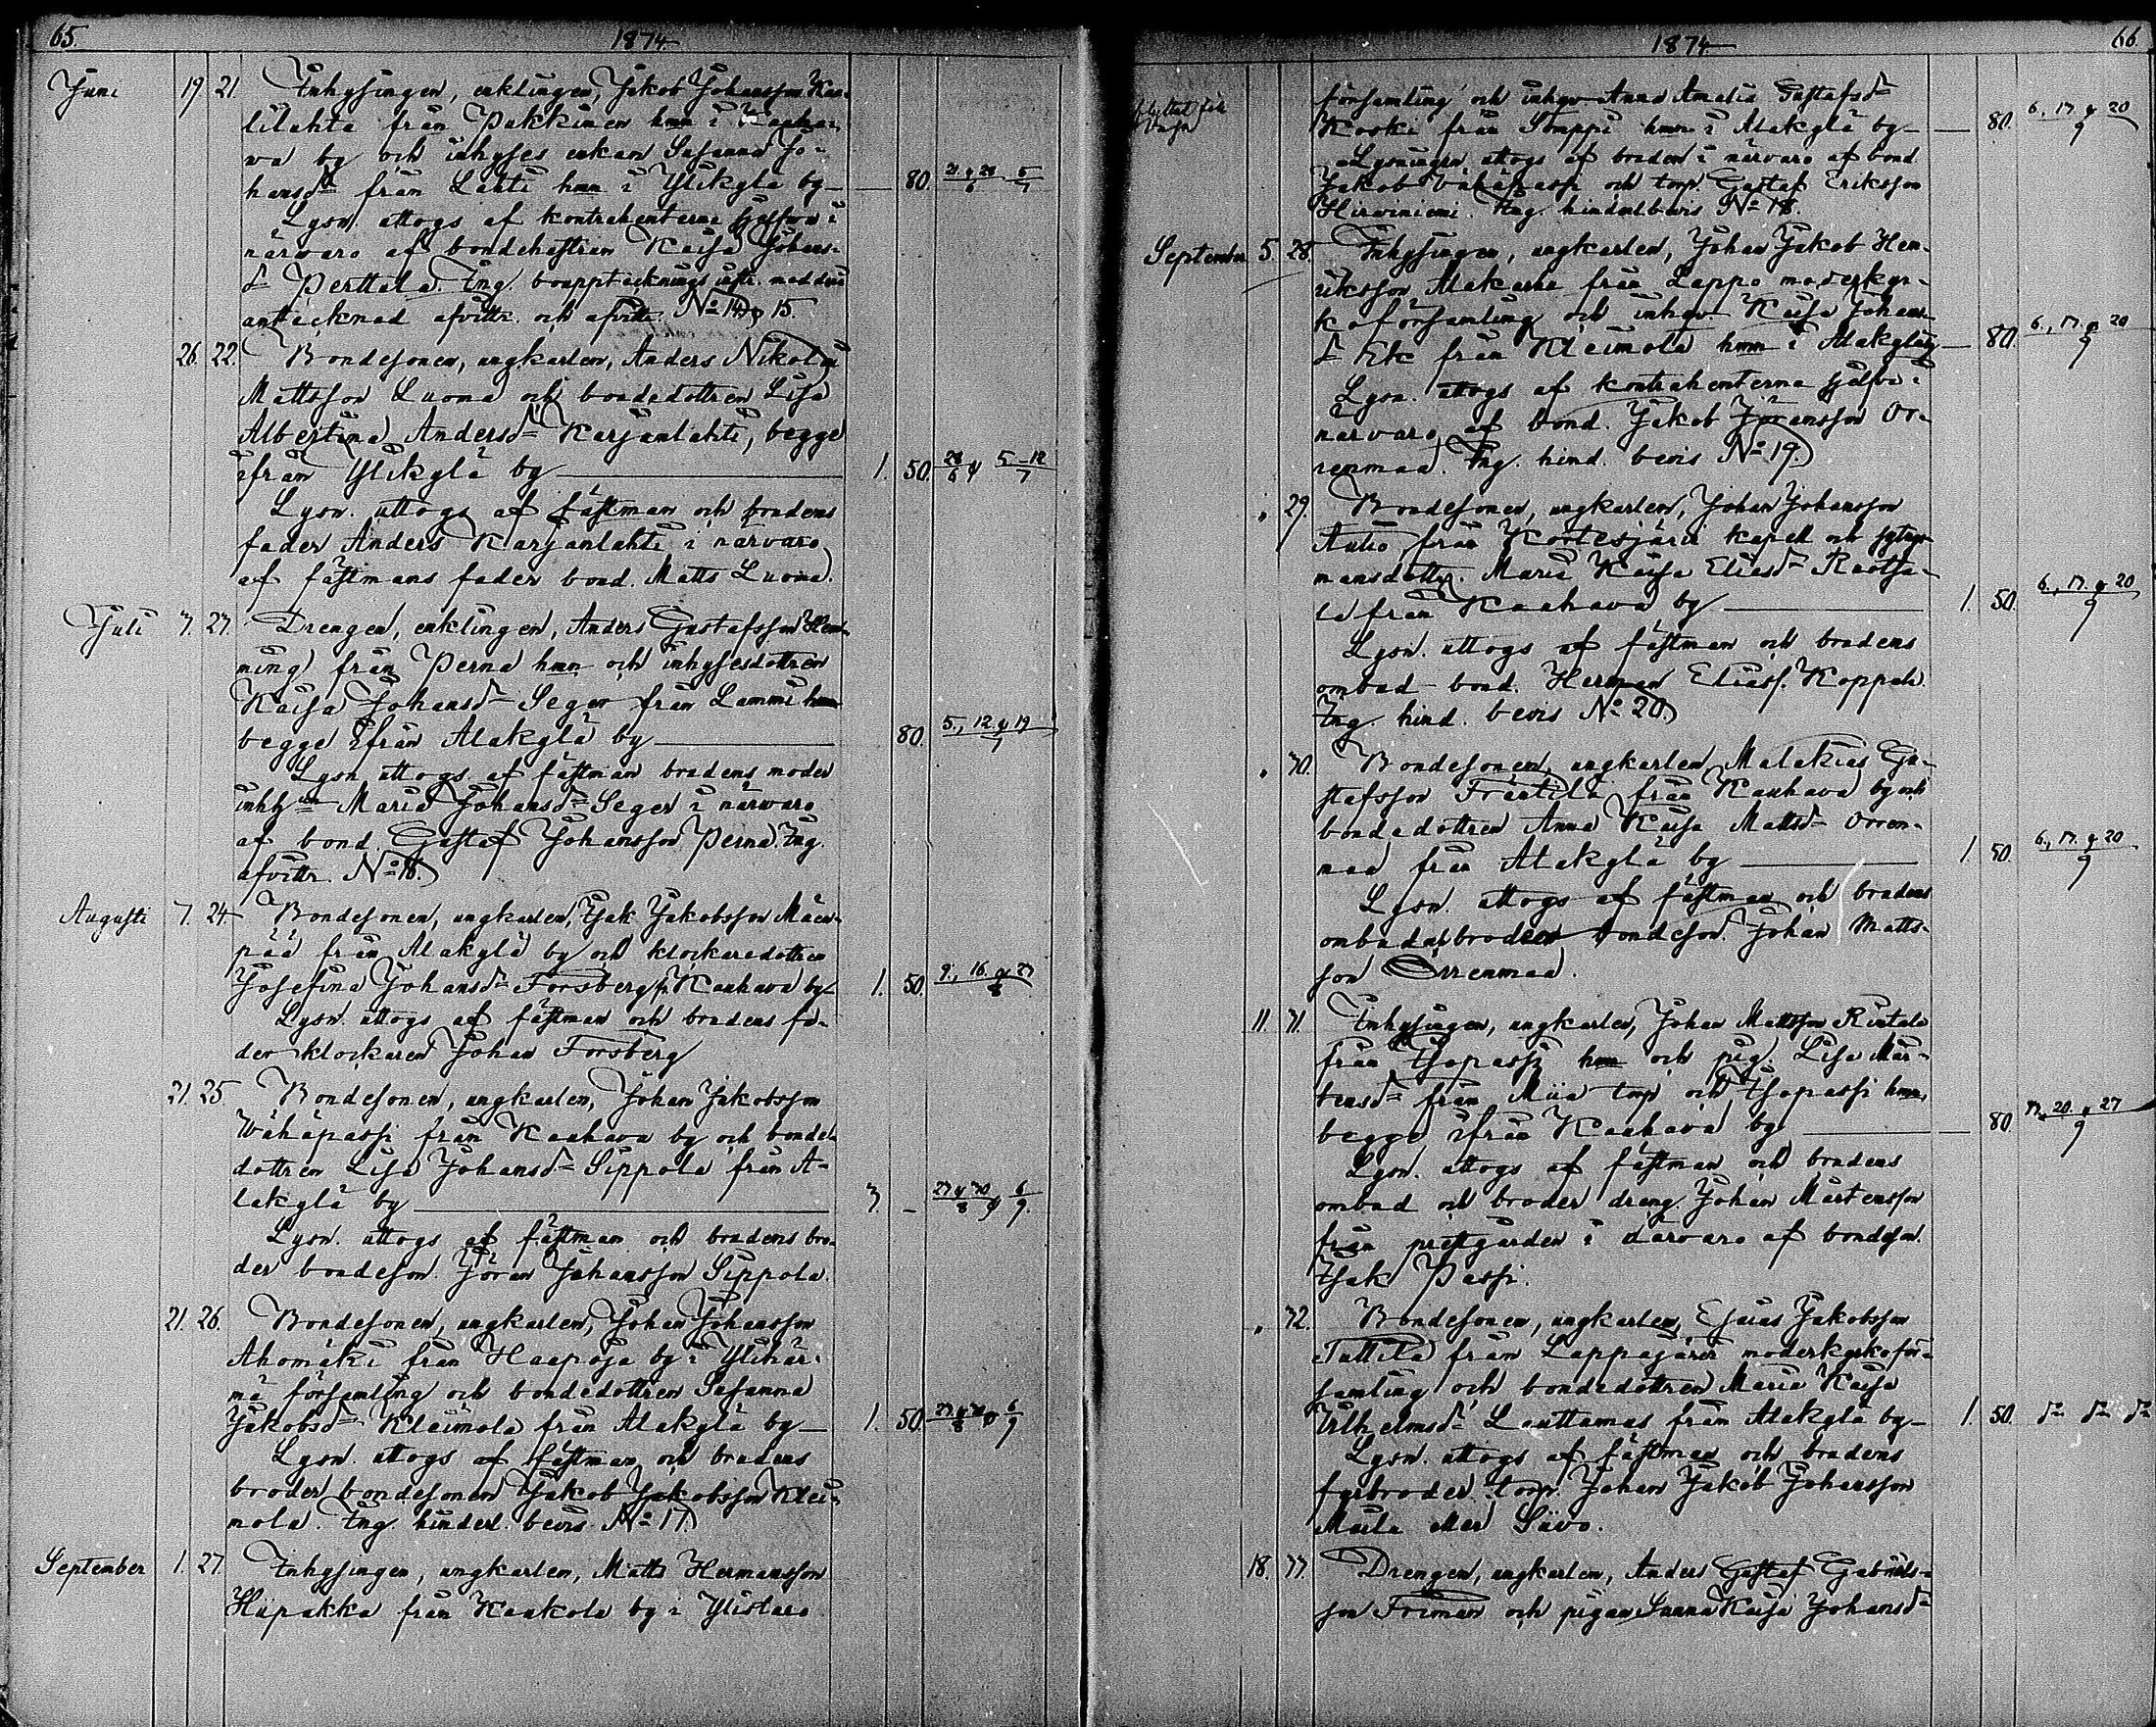 65.
1874
Juni 19 21. Inhysingen, enklingen, Jakob Johansson Kau-
lilahta från Pakkinen hmn i Kauha-
va by och inhyses enkan Susanna Jo-
hansdr från Lahti hmn i Ylikylä by — 80. 21 & 28/6 5/7
Lysn. uttogs af kontrahenterne sjelfva i
närvaro af bondehustrun Kaisa Johans-
dr Perttula. Ing. bouppteckningsinstr. med derå
antecknad afvittr. och afvittr. No 14 & 15.
26. 22. Bondesonen, ungkarlen, Anders Nikolai
Mattsson Luoma och bondedottren Lisa
Albertina Andersdr Karjanlahti, begge
ifrån Ylikylä by — 1. 50. 28/6 & 5-12/7
Lysn. uttogs af fästman och brudens
fader Anders Karjanlahti i närvaro
af fästmans fader bond. Matts Luoma.
Juli 3. 23. Drengen, enklingen, Anders Gustafsson Hem-
ming från Perna hmn och inhysesdottren
Kaisa Johansdr Seger från Lammi hmn
begge ifrån Alakylä by — 80. 5., 12 & 19/7
Lysn. uttogs af fästman brudens moder
Maria Johansdr Seger i närvaro
af bond. Gustaf Johansson Perna. Ing.
afvittr. No 16.
Augusti 7. 24. Bondesonen, ungkarlen, Isak Jakobsson Mäen-
pää från Alakylä by och klockaredottren
Josefina Johansdr Forsberg fr. Kauhava by — 1. 50. 9., 16 & 23/8
Lysn. uttogs af fästman och brudens fa-
der klockaren Johan Forsberg
21. 25. Bondesonen, ungkarlen, Johan Jakobsson
Wähäpassi från Kauhava by och bonde-
dottren Lisa Johansdr Sippola från A-
lakylä by — 3. - 23 & 30/8 & 6/9.
Lysn. uttogs af fästman och brudens bro-
der bondeson. Jöran Johansson Sippola.
21. 26. Bondesonen, ungkarlen, Johan Johansson
Ahomäki från Haapoja by i Ylihär-
mä församling och bondedottren Susanna
Jakobsdr Kleimola från Alakylä by — 1. 50. 23 & 30/8 & 6/9
Lysn. uttogs af fästman och brudens
broder bondesonen Jakob Jakobsson Klei-
mola. Ing. hinderl. bevis No 17.
September 1. 27. Inhysingen, ungkarlen, Matts Hermansson
Hiipakka från Kaukola by i Ylistaro
66.
1874
församling och inhys. Anna Amalia Gustafsdr
Koski från Somppi hmn i Alakylä by — 80. 6., 13. & 20/9
Lysningen uttogs af bruden i närvaro af bond.
Jakob Wähäpassi och torp. Gustaf Eriksson
Hirviniemi. Ing. hinderl. bevis No 18.
September 5. 28. Inhysingen, ungkarlen, Johan Jakob Hen-
riksson Alakarra från Lappo moderkyr-
koförsamling och inhys. Kaisa Johans-
dr Ek från Kleimola hmn i Alakylä by — 80. 6., 13. & 20/9
Lysn. uttogs af kontrahenterna sjelfva i
närvaro af bond. Jakob Jöransson Or-
renmaa. Ing. hind. bevis No 19.
" 29. Bondesonen, ungkarlen, Johan Johansson
Autio från Kortesjärvi kapell och
mansdottr. Maria Kaisa Eliasdr Raotsa-
la från Kauhava by — 1. 50. 6., 13. & 20/9
Lysn. uttogs af fästman och brudens
ombud bond. Herman Eliass. Koppali.
Ing. hind. bevis No 20.
" 30. Bondesonen, ungkarlen Malakias Gu-
stafsson Fräntilä från Kauhava by och
bondedottren Anna Kaisa Mattsdr Orren-
maa från Alakylä by — 1. 50. 6., 13. & 20/9
Lysn. uttogs af fästman och brudens
ombud broder bondeson. Johan Matts-
son Orrenmaa.
11. 31. Inhysingen, ungkarlen, Johan Mattsson Rintala
från Isopassi hmn och pig. Lisa Mår-
tensdr från Miia torp och Isopassi hmn,
begge ifrån Kauhava by — 80. 13., 20. & 27/9
Lysn. uttogs af fästman och brudens
ombud och broder dreng. Johan Mårtensson
från prestgården i närvaro af bondeson.
Isak Passi.
" 32. Bondesonen, ungkarlen, Esaias Jakobsson
Tuttila från Lappajärvi moderkyrkoför-
samling och bondedottren Maria Kaisa
Wilhelmsdr Lauttamus från Alakylä by — 1. 50. do do do
Lysn. uttogs af fästman och brudens
farbroder torp. Johan Jakob Johansson
eller Siivo.
18. 33. Drengen, ungkarlen, Anders Gustaf Gabriels-
son Friman och pigan Sanna Kaisa Johansdr